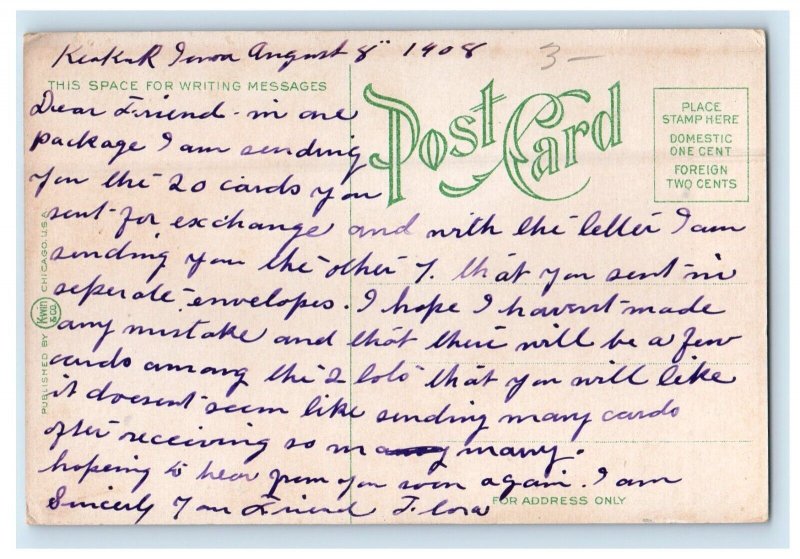 Keokuk Iowa August 8" 1908
3-
THIS SPACE FOR WRITING MESSAGES
Post Card
PLACE
STAMP HERE
DOMESTIC
ONE CENT
FOREIGN
TWO CENTS
Dear Friend - in one
package I am sending
you the 20 cards you
sent for exchange and with the letter I am
sending you the other 7. that you sent in
seperate envelopes. I hope I havent made
any mistake and that there will be a few
cards among the 2 lots that you will like
it doesent seem like sending many cards
after receiving so many many.
hoping to hear from you soon again. I am
Sincerly Your Friend Flora
FOR ADDRESS ONLY
PUBLISHED BY KWIN & CO. CHICAGO. U.S.A.